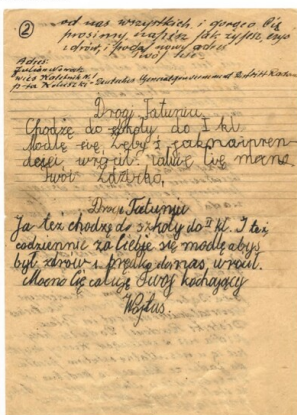 2
od nas wszystkich, i gorąco Cię
prosimy napisz jak żyjesz, czyś
zdrów, i podaj nowy adres
Twój
Adres:
Julian Nowak
wieś
p-ta Koluszki
Drogi Tatuniu.
Chodzę do szkoły do I kl.
Modlę się, żeby
wrócił. Całuję Cię mocno
Twój
Drogi Tatuniu
Ja też chodzę do szkoły do II kl. I też
codziennie za Ciebie się modlę abyś
był zdrów i prędko do nas wrócił.
Mocno Cię całuję Twój kochający
Wojtuś.